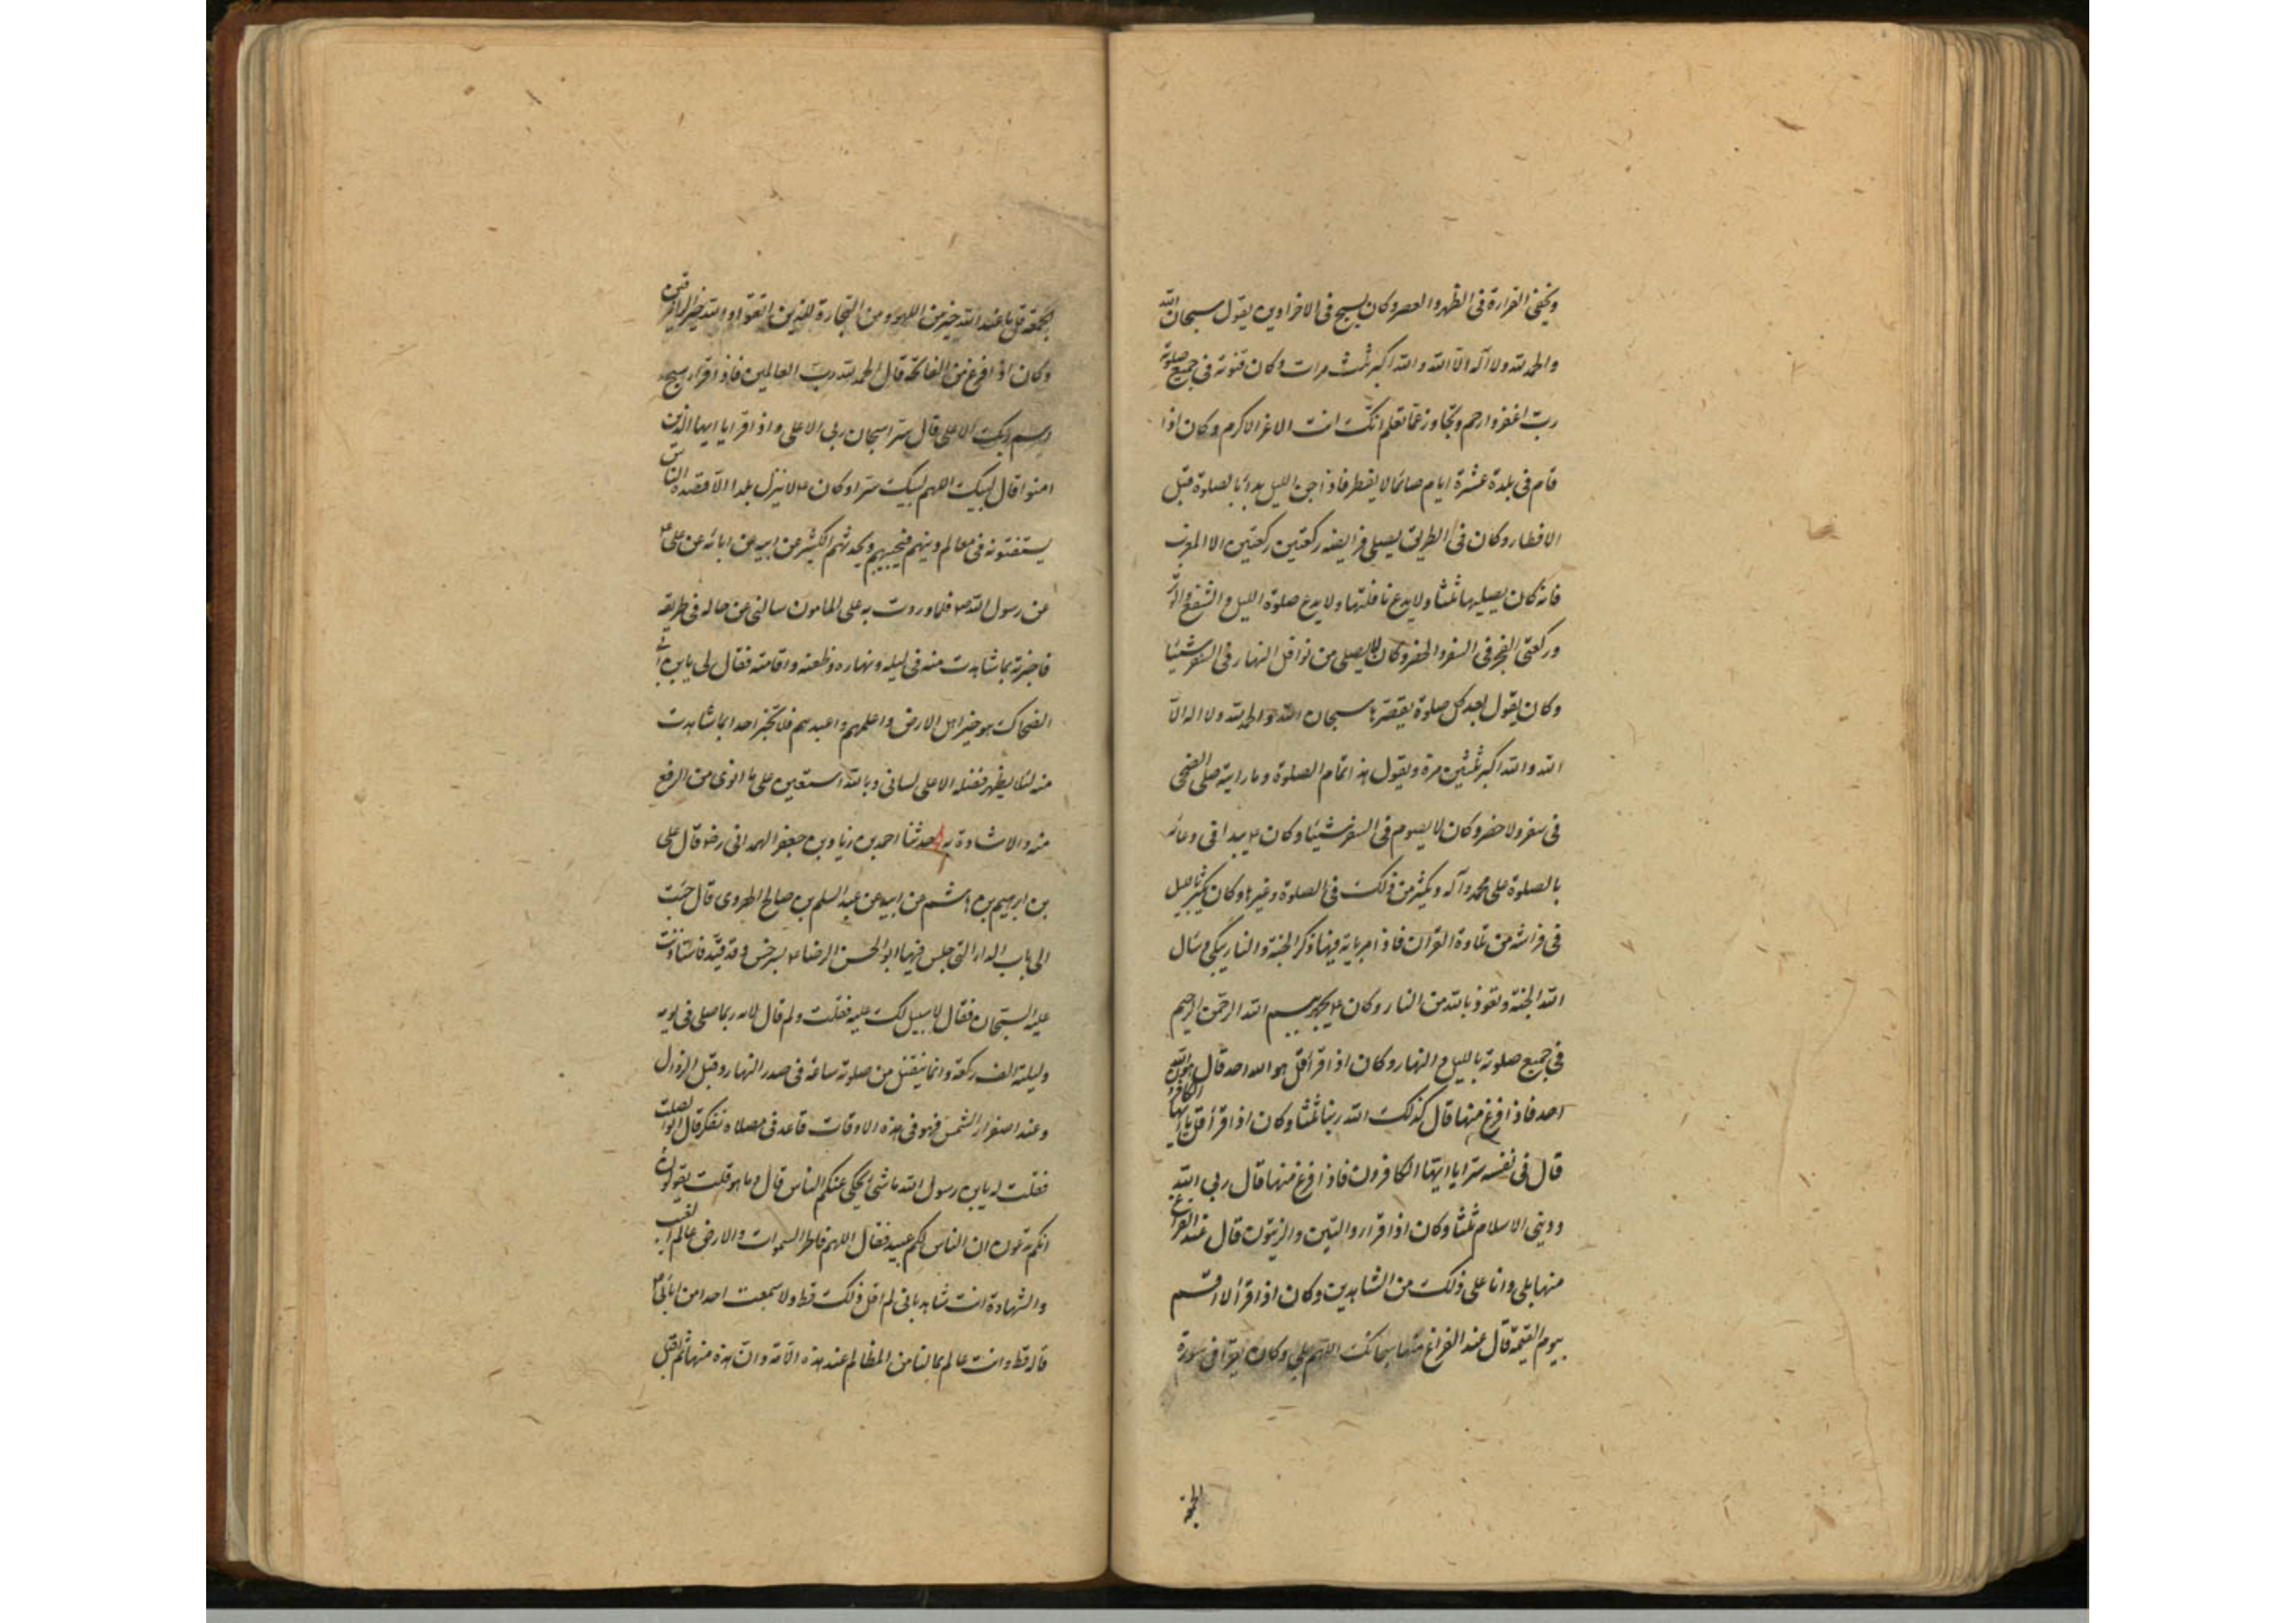 ويخفى القراءة فى الظهر والعصر وكان يسبح فى الاخراوين يقول سبحان الله
والحمد لله ولا اله الا الله والله اكبر ثلث مرات وكان قنوته فى جميع صلوته
رب اغفر وارحم وتجاوز عما تعلم انك انت الاعز الاكرم وكان اذا
قام فى بلدة عشرة ايام صائما لا يفطر فاذا جن الليل بدأ بالصلوة قبل
الافطار وكان فى الطريق يصلى فرايضه ركعتين ركعتين الا المغرب
فانه كان يصليها ثلثا ولا يدع نافلتها ولا يدع صلوة الليل والشفع والوتر
وركعتى الفجر فى السفر والحضر وكان لا يصلى من نوافل النهار فى السفر شيئا
وكان يقول بعد كل صلوة يقصرها سبحان الله والحمد لله ولا اله الا
الله والله اكبر ثلثين مرة ويقول هذا تمام الصلوة وما رايته صلى الضحى
فى سفر ولا حضر وكان لا يصوم فى السفر شيئا وكان ع يبدا فى دعائه
بالصلوة على محمد وآله ويكثر من ذلك فى الصلوة وغيرها وكان يكثر بالليل
فى فراشه من تلاوة القرآن فاذا مر باية فيها ذكر الجنة والنار بكى وسال
الله الجنة وتعوذ بالله من النار وكان ع يجهر ببسم الله الرحمن الرحيم
فى جميع صلوته بالليل والنهار وكان اذا قرأ قل هو الله احد قال هو الله
احد فاذا فرغ منها قال كذلك الله ربنا ثلثا وكان اذا قرأ قل يا ايها الكافرون
قال فى نفسه سرا يا ايها الكافرون فاذا فرغ منها قال ربى الله
ودينى الاسلام ثلثا وكان اذا قرار والتين والزيتون قال عند الفراغ
منها بلى وانا على ذلك من الشاهدين وكان اذا قرأ لا اقسم
بيوم القيمة قال عند الفراغ منها سبحانك اللهم بلى وكان يقرا فى سورة
الجمعة
الجمعة قل ما عند الله خير من اللهو ومن التجارة للذين اتقوا والله خير الرازقين
وكان اذا فرغ من الفاتحة قال الحمد لله رب العالمين فاذا قرار سبح
اسم ربك الاعلى قال سرا سبحان ربى الاعلى واذا قرا يا ايها الذين
امنوا قال لبيك اللهم لبيك سرا وكان ع لا ينزل بلدا الا قصده الناس
يستفتونه فى معالم دينهم فيجيبهم ويحدثهم الكثير عن ابيه عن ابائه عن على ع
عن رسول الله ص فلما وردت به على المامون سالنى عن حاله فى طريقه
فاخبرته بما شاهدت منه فى ليله ونهاره وظعنه واقامته فقال لى يا بن ابى
الضحاك هو خير اهل الارض واعلمهم واعبدهم فلا تخبر احدا بما شاهدت
منه لئلا يظهر فضله الا على لسانى وبالله استعين على ما انوى من الرفع
منه والاشادة به حدثنا احمد بن زياد بن جعفر الهمدانى رضه قال على
بن ابرهيم بن هاشم عن ابيه عن عبد السلم بن صالح الهروى قال جئت
الى باب الدار التى حبس فيها ابو الحسن الرضا ع بسرخس وقد قيد فاستاذنت
عليه السجان فقال لا سبيل لك عليه فقلت ولم قال لانه ربما صلى فى يومه
وليلته الف ركعة وانما ينفتل من صلوته ساعة فى صدر النهار وقبل الزوال
وعند اصفرار الشمس فهو فى هذه الاوقات قاعد فى مصلاه تفكر قال ابوالصلت
فقلت له يا بن رسول الله ما شئ يحكى عنكم الناس قال وما هو قلت يقولون
انكم تدعون ان الناس لكم عبيد فقال اللهم فاطر السموات والارض عالم الغيب
والشهادة انت شاهد بانى لم اقل ذلك قط ولا سمعت احدا من ابائى ع
قاله قط وانت عالم بما لنا من المظالم عند هذه الامة وان هذه منها ثم اقبل